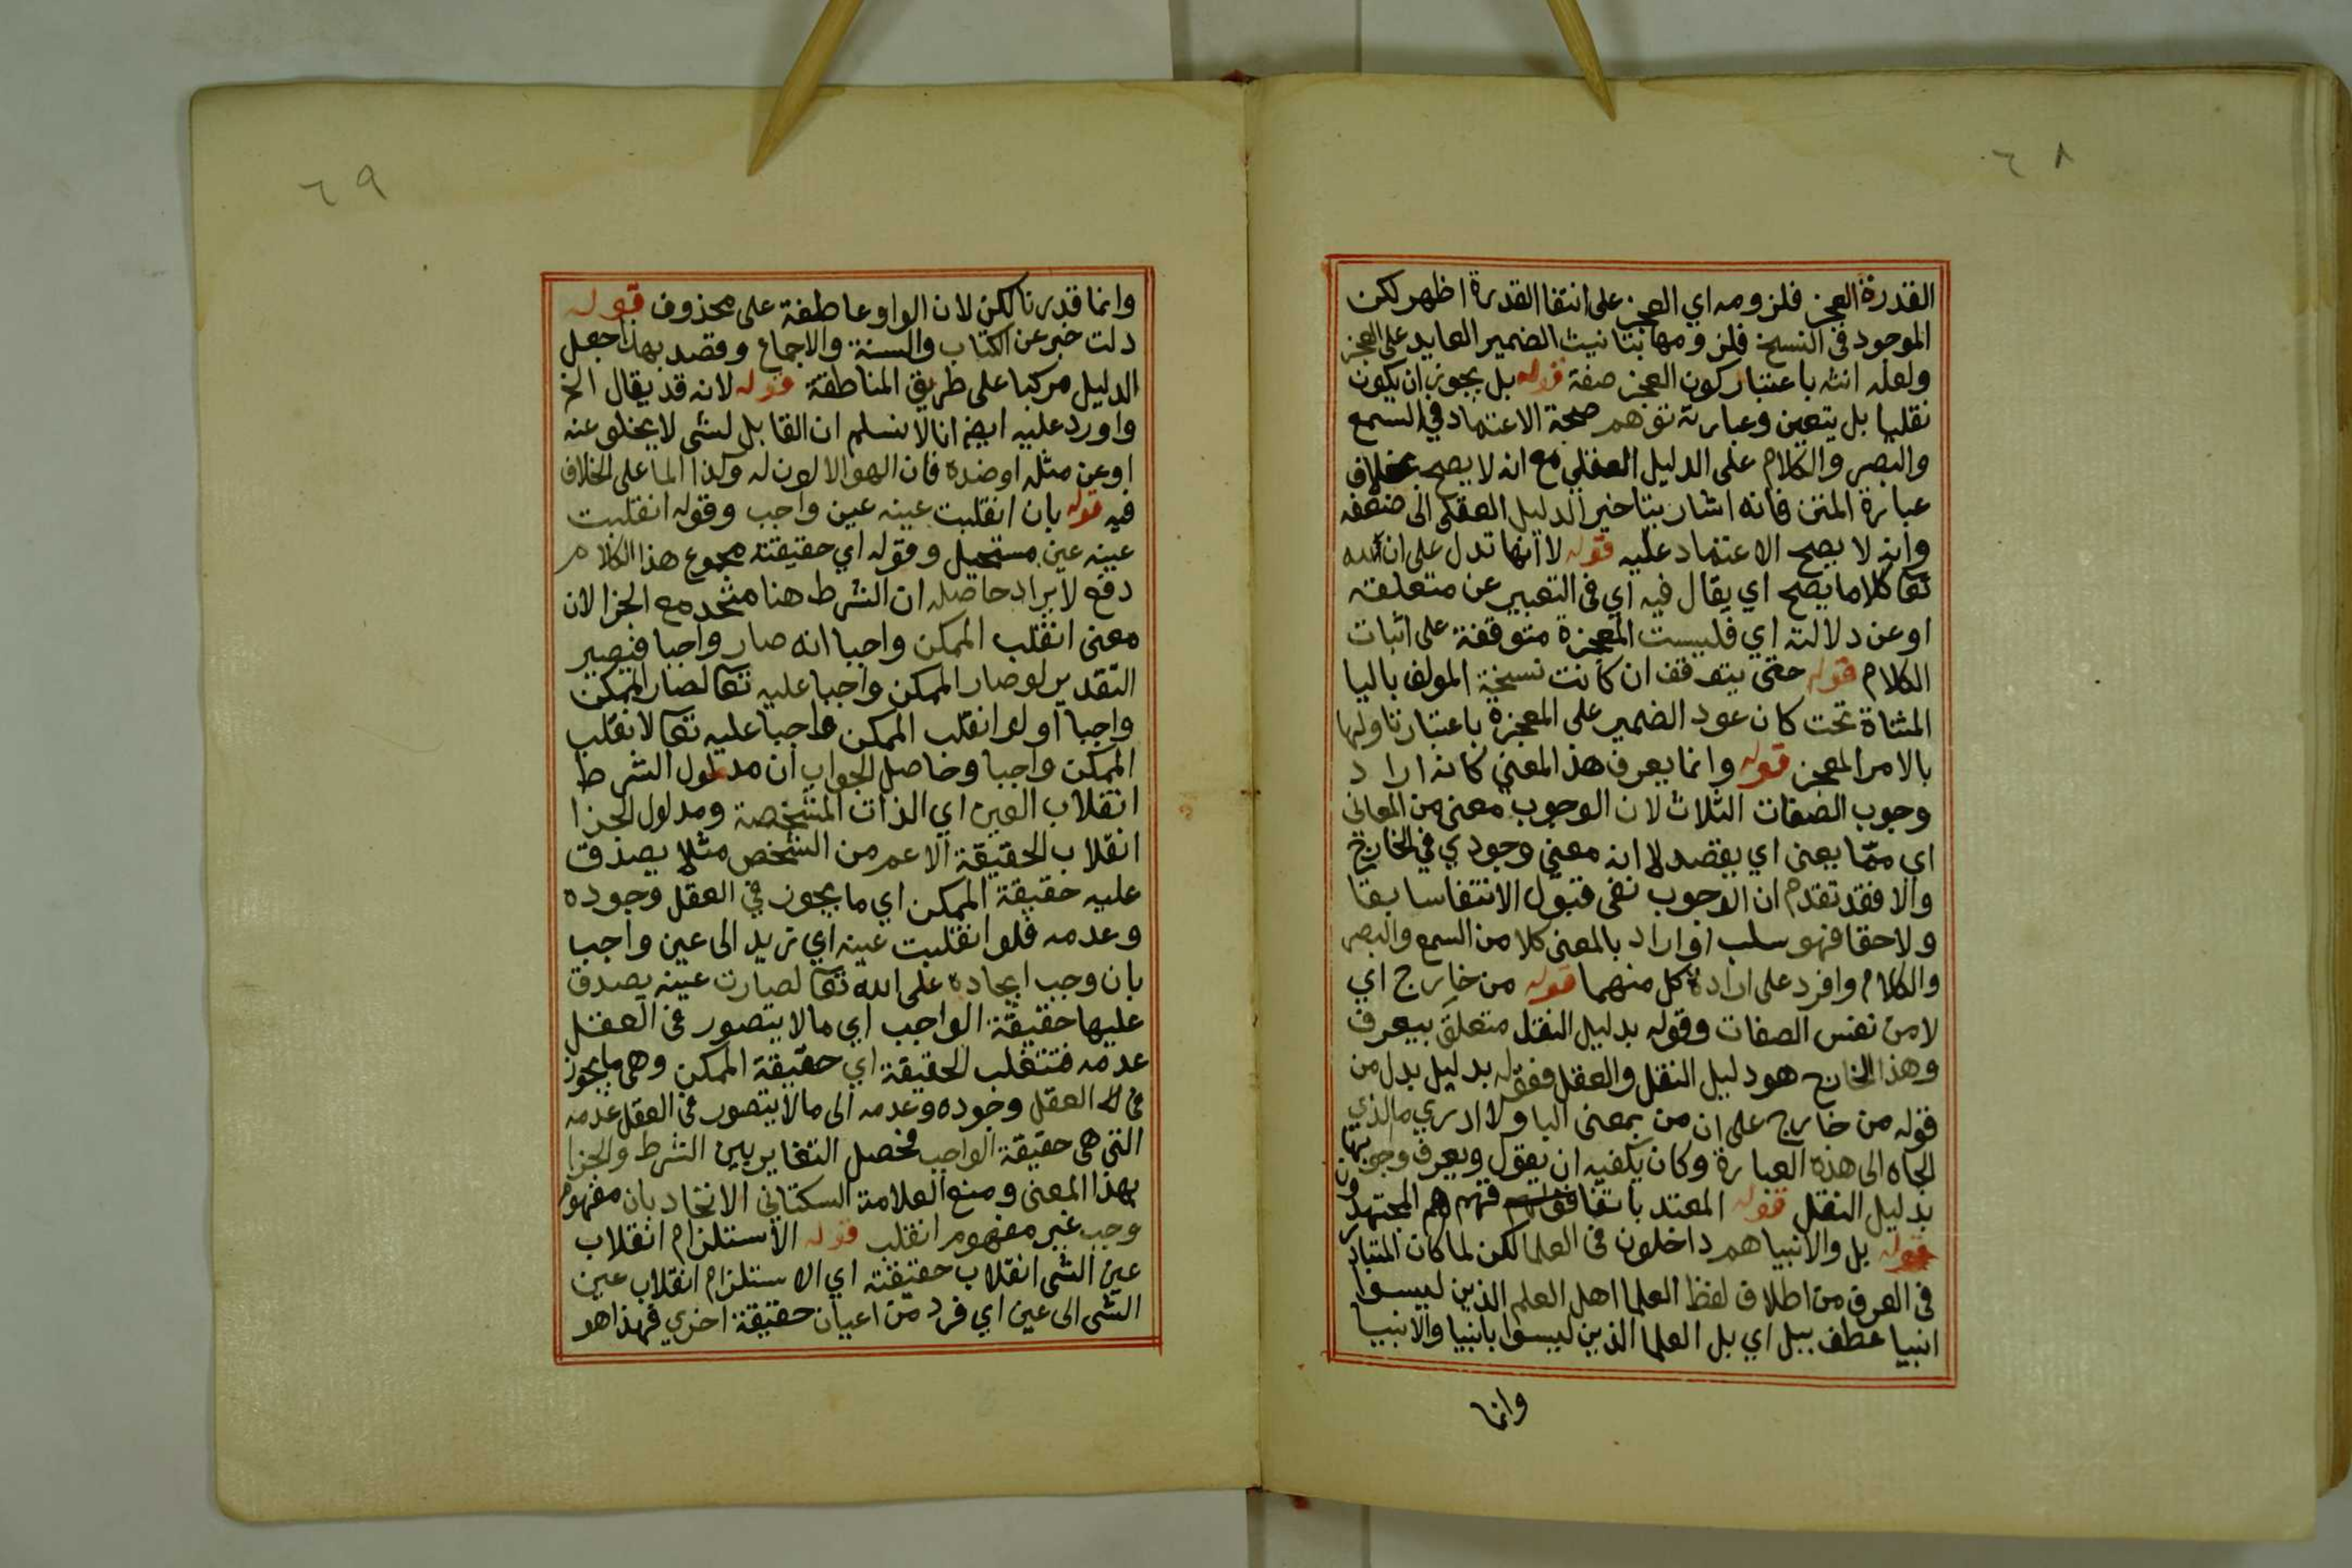 ٦٨
القدرة العجز فلزومه اي العجز على انتفا القدرة اظهر لكن
الموجود في النسخ فلزومها بتانيث الضمير العايد على العجز
ولعله انثه باعتبار كون العجز صفة قوله بل يجوز ان يكون
نقليا بل يتعين وعبارته توهم صحة الاعتماد في السمع
والبصر والكلام على الدليل العقلي مع انه لا يصح بخلاف
عبارة المتن فانه اشار بتاخير الدليل العقلي الى ضعفه
وانه لا يصح الاعتماد عليه قوله لا انها تدل على ان لله
تعا كلاما يصح اي يقال فيه اي في التعبير عن متعلقه
او عن دلالته اي فليست المعجزة متوقفة على اثبات
الكلام قوله حتى يتوقف ان كانت نسخة المولف باليا
المثناة تحت كان عود الضمير على المعجزة باعتبار تاولها
بالامر المعجز قوله وانما يعرف هذا المعنى كانه اراد
وجوب الصفات الثلاث لان الوجوب معنى من المعاني
اي مما يعنى اي يقصد لا انه معنى وجودي في الخارج
والا فقد تقدم ان الوجوب نفي قبول الانتفا سابقا
ولاحقا فهو سلب او اراد بالمعنى كلا من السمع والبصر
والكلام وافرد على ارادة كل منهما قوله من خارج اي
لا من نفس الصفات وقوله بدليل النقل متعلق بيعرف
وهذا الخارج هو دليل النقل والعقل فقوله بدليل بدل من
قوله من خارج على ان من بمعنى البا ولا ادري ما الذي
الجاه الى هذه العبارة وكان يكفيه ان يقول ويعرف وجوبها
بدليل النقل قوله المعتد باتفاقهم فهم هم المجتهدون
قوله بل والانبيا هم داخلون في العلما لكن لما كان المتبادر
في العرف من اطلاق لفظ العلما اهل العلم الذين ليسوا
انبيا عطف ببل اي بل العلما الذين ليسوا بانبيا والانبيا
وانما
٦٩
وانما قدرنا لكن لان الواو عاطفة على محذوف قوله
دلت خبر عن الكتاب والسنة والاجماع وقصد بهذا جعل
الدليل مركبا على طريق المناطقة قوله لانه قد يقال الخ
واورد عليه ايضا انا لا نسلم ان القابل لشي لا يخلو عنه
او عن مثله او ضده فان الهوا لا لون له وكذا الما على الخلاف
فيه قوله بان انقلبت عينه عين واجب وقوله انقلبت
عينه عين مستحيل وقوله اي حقيقته مجموع هذا الكلام
دفع لايراد حاصله ان الشرط هنا متحد مع الجزا لان
معنى انقلب الممكن واجبا انه صار واجبا فيصير
التقدير لو صار الممكن واجبا عليه تعا لصار الممكن
واجبا او لو انقلب الممكن واجبا عليه تعا لانقلب
الممكن واجبا وحاصل الجواب ان مدلول الشرط
انقلاب العين اي الذات المتشخصة ومدلول الجزا
انقلاب الحقيقة الاعم من الشخص مثلا يصدق
عليه حقيقة الممكن اي ما يجوز في العقل وجوده
وعدمه فلو انقلبت عينه اي زيد الى عين واجب
بان وجب ايجاده على الله تعا لصارت عينه يصدق
عليها حقيقة الواجب اي ما لا يتصور في العقل
عدمه فتنقلب الحقيقة اي حقيقة الممكن وهي ما يجوز
في العقل وجوده وعدمه الى ما لا يتصور في العقل عدمه
التي هي حقيقة الواجب فحصل التغاير بين الشرط والجزا
بهذا المعنى ومنع العلامة السكتاني الاتحاد بان مفهوم
وجب غير مفهوم انقلب قوله الاستلزام انقلاب
عين الشي انقلاب حقيقته اي الاستلزام انقلاب عين
الشي الى عين اي فرد من اعيان حقيقة اخري فهذا هو